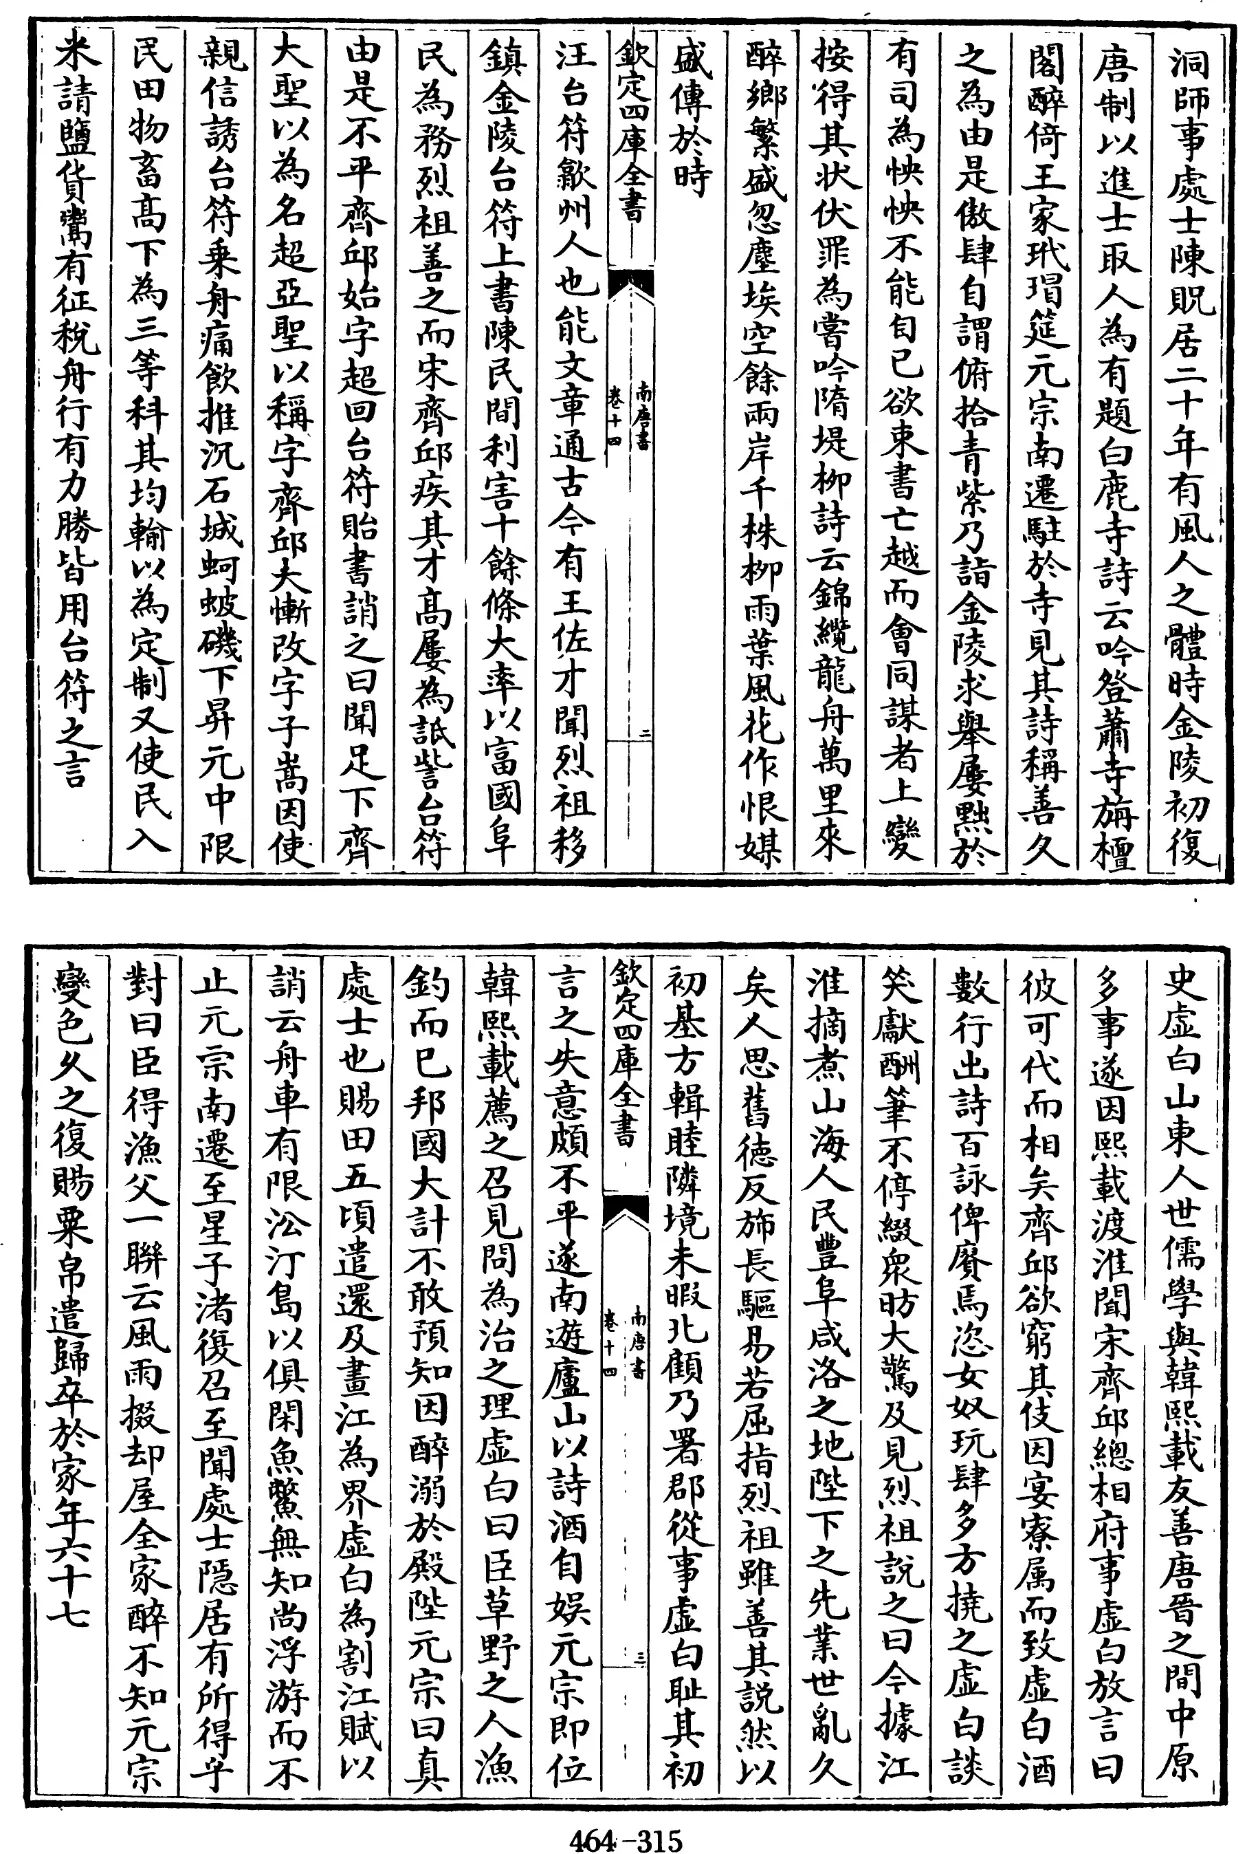 洞師事處士陳貺居二十年有風人之體時金陵初復
唐制以進士取人為有題白鹿寺詩云吟登蕭寺旃檀
閣醉倚王家玳瑁筵元宗南遷駐於寺見其詩稱善久
之為由是傲肆自謂俯拾青紫乃詣金陵求舉屢黜於
有司為怏怏不能自已欲束書亡越而會同謀者上變
按得其狀伏罪為嘗吟隋堤柳詩云錦纜龍舟萬里來
醉鄉繁盛忽塵埃空餘兩岸千株柳雨葉風花作恨媒
盛傳於時
欽定四庫全書
南唐書
卷十四
二
汪台符歙州人也能文章通古今有王佐才聞烈祖移
鎮金陵台符上書陳民間利害十餘條大率以富國阜
民為務烈祖善之而宋齊邱疾其才髙屢為詆訾台符
由是不平齊邱始字超回台符貽書誚之曰聞足下齊
大聖以為名超亞聖以稱字齊邱大慚改字子嵩因使
親信誘台符乘舟痛飲推沉石城蚵蚾磯下昇元中限
民田物畜髙下為三等科其均輸以為定制又使民入
米請鹽貨鬻有征稅舟行有力勝皆用台符之言
史虛白山東人世儒學與韓熙載友善唐晉之間中原
多事遂因熙載渡淮聞宋齊邱總相府事虛白放言曰
彼可代而相矣齊邱欲窮其伎因宴寮属而致虛白酒
數行出詩百詠俾賡焉恣女奴玩肆多方撓之虛白談
笑獻酬筆不停綴衆昉大驚及見烈祖說之曰今據江
淮摘煮山海人民豐阜咸洛之地陛下之先業世亂久
矣人思舊徳反斾長驅易若屈指烈祖雖善其說然以
初基方輯睦隣境未暇北顧乃署郡從事虛白耻其初
欽定四庫全書
南唐書
卷十四
三
言之失意頗不平遂南遊廬山以詩酒自娱元宗即位
韓熙載薦之召見問為治之理虛白曰臣草野之人漁
釣而已邦國大計不敢預知因醉溺於殿陛元宗曰真
處士也賜田五頃遣還及畫江為界虛白為割江賦以
誚云舟車有限㳂汀島以俱閑魚鱉無知尚浮游而不
止元宗南遷至星子渚復召至問處士隱居有所得乎
對曰臣得漁父一聯云風雨掇却屋全家醉不知元宗
變色久之復賜粟帛遣歸卒於家年六十七
464-315